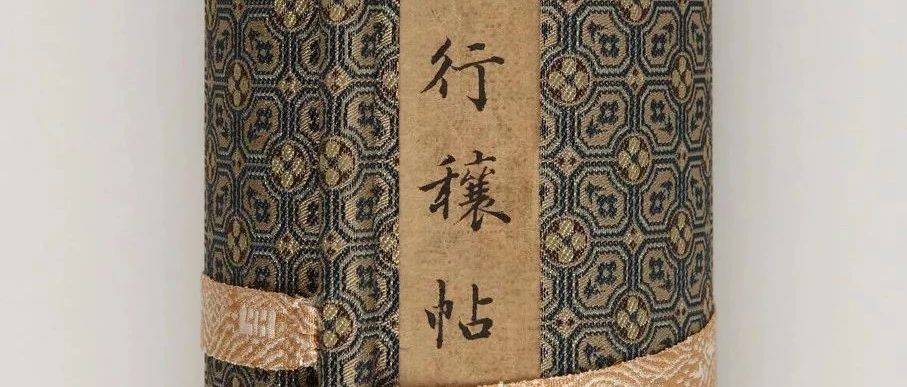 行穰帖